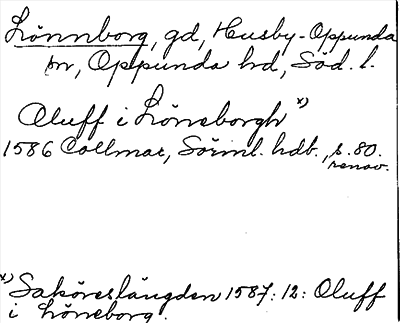 Lönnborg, gd, Husby-Oppunda
sn, Oppunda hd, Söd. l.
Oluff i Löneborgh x)
1586 Collmar, Sörml. hdb., s. 80.
renov.
x) Saköreslängden 1587:12: Oluff
i Löneborg.